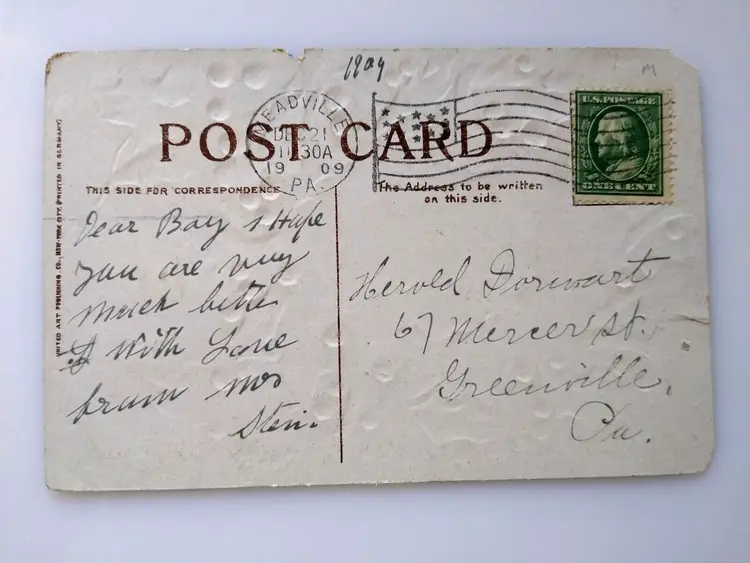 1909
M
MEADVILLE
DEC 21
11 30A
19 09
PA.
U.S. POSTAGE
ONE CENT
POST CARD
THIS SIDE FOR CORRESPONDENCE
The Address to be written
on this side.
UNITED ART PUBLISHING CO., NEW YORK CITY. (PRINTED IN GERMANY)
Dear Boy I Hope
you are very
much better
With Love
from Mrs
Herold Dorwart
67 Mercer St.
Greenville.
Pa.